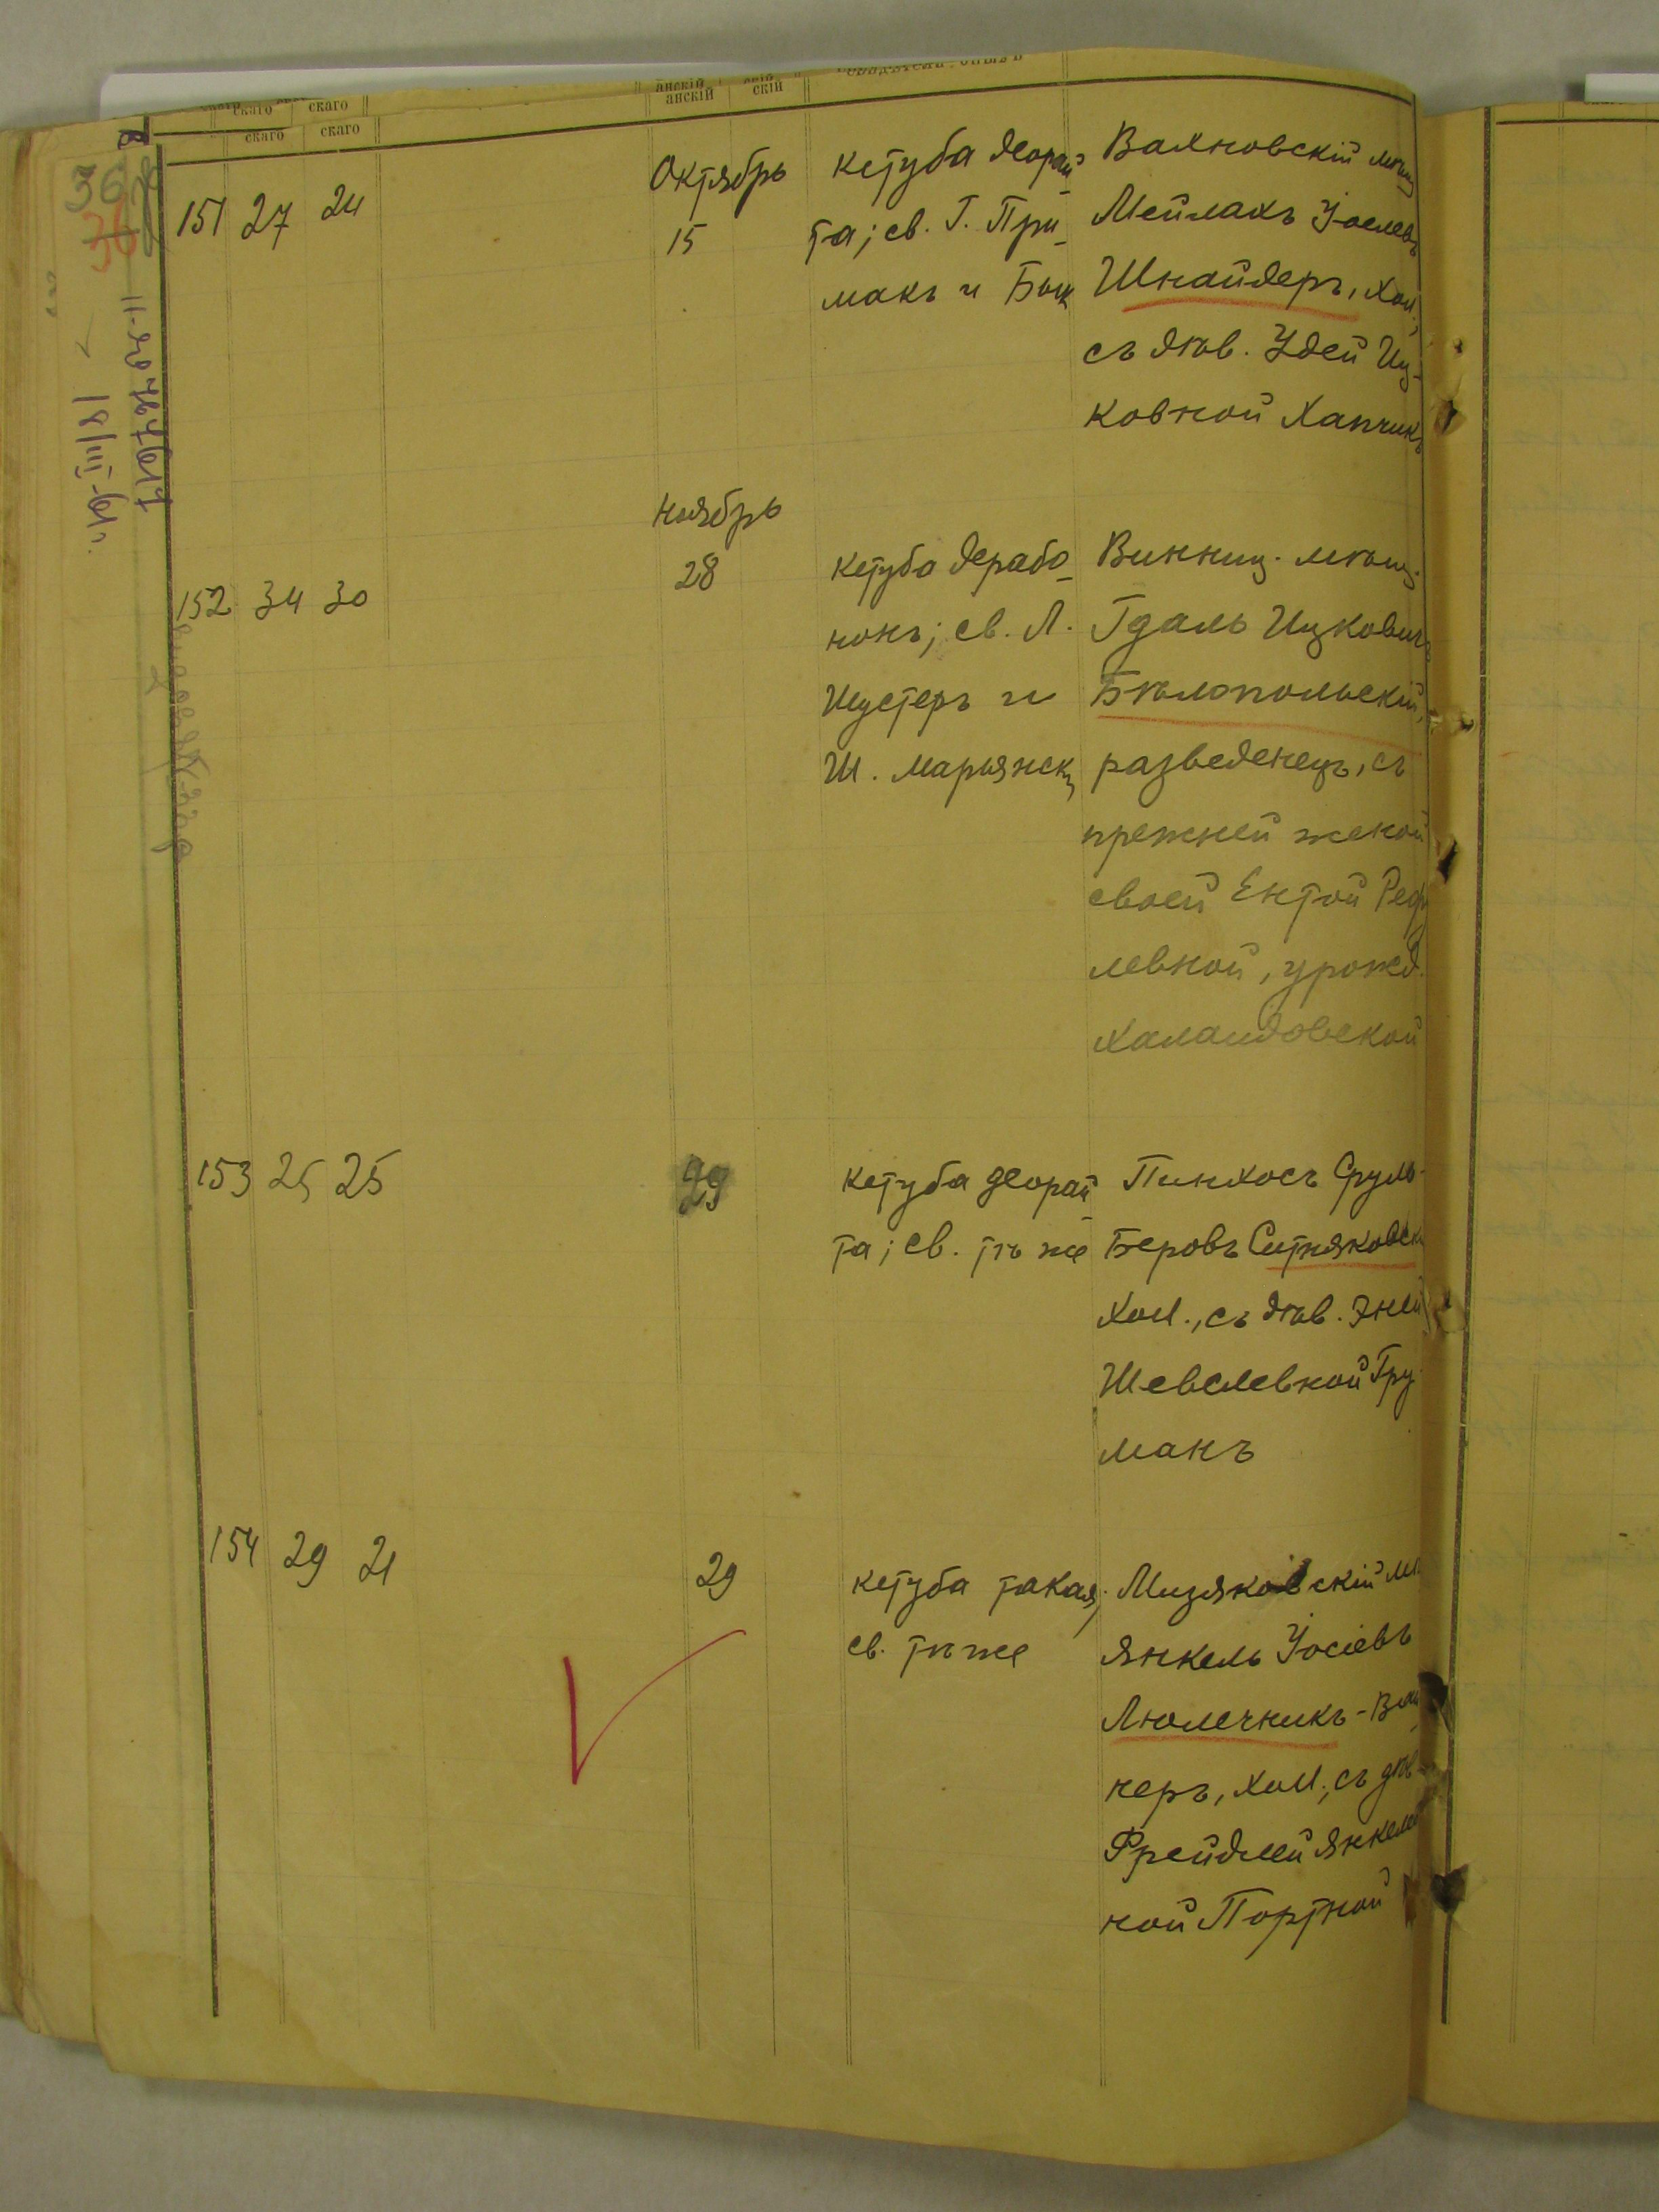 скаго скаго анскій скій
скаго скаго анскій
36
36
151 27 24
Октябрь
15
кетуба деорай-
та; св. Г. При-
макъ и Бык
Вахновскій мѣщ
Мейлахъ Іоелевъ
Шнайдеръ, хол.,
съ дѣв. Удей Иц-
ковной Хапчикъ
152 34 30
Ноябрь
28
кетуба дерабо-
нонъ; св. Л.
Шустеръ и
Ш. Марьянск
Винниц. мѣщ.
Гдаль Ицковичъ
Бѣлопольскій,
разведенецъ, съ
прежней женой
своей Ентой Реф
левной, урожд.
Халаидовской
153 25 25
29
кетуба деорай-
та; св. тѣ же
Пинхосъ Сруль-
Беровъ Ситняковск
хол., съ дѣв. Эней
Шевелевной Гру-
манъ
154 29 21
29
кетуба такая;
св. тѣ же
Мизяковскій мѣ
Янкель Іосіевъ
Люлечникъ-Вай
неръ, хол., съ дѣв
Фрейдлей Янкеле
ной Портной